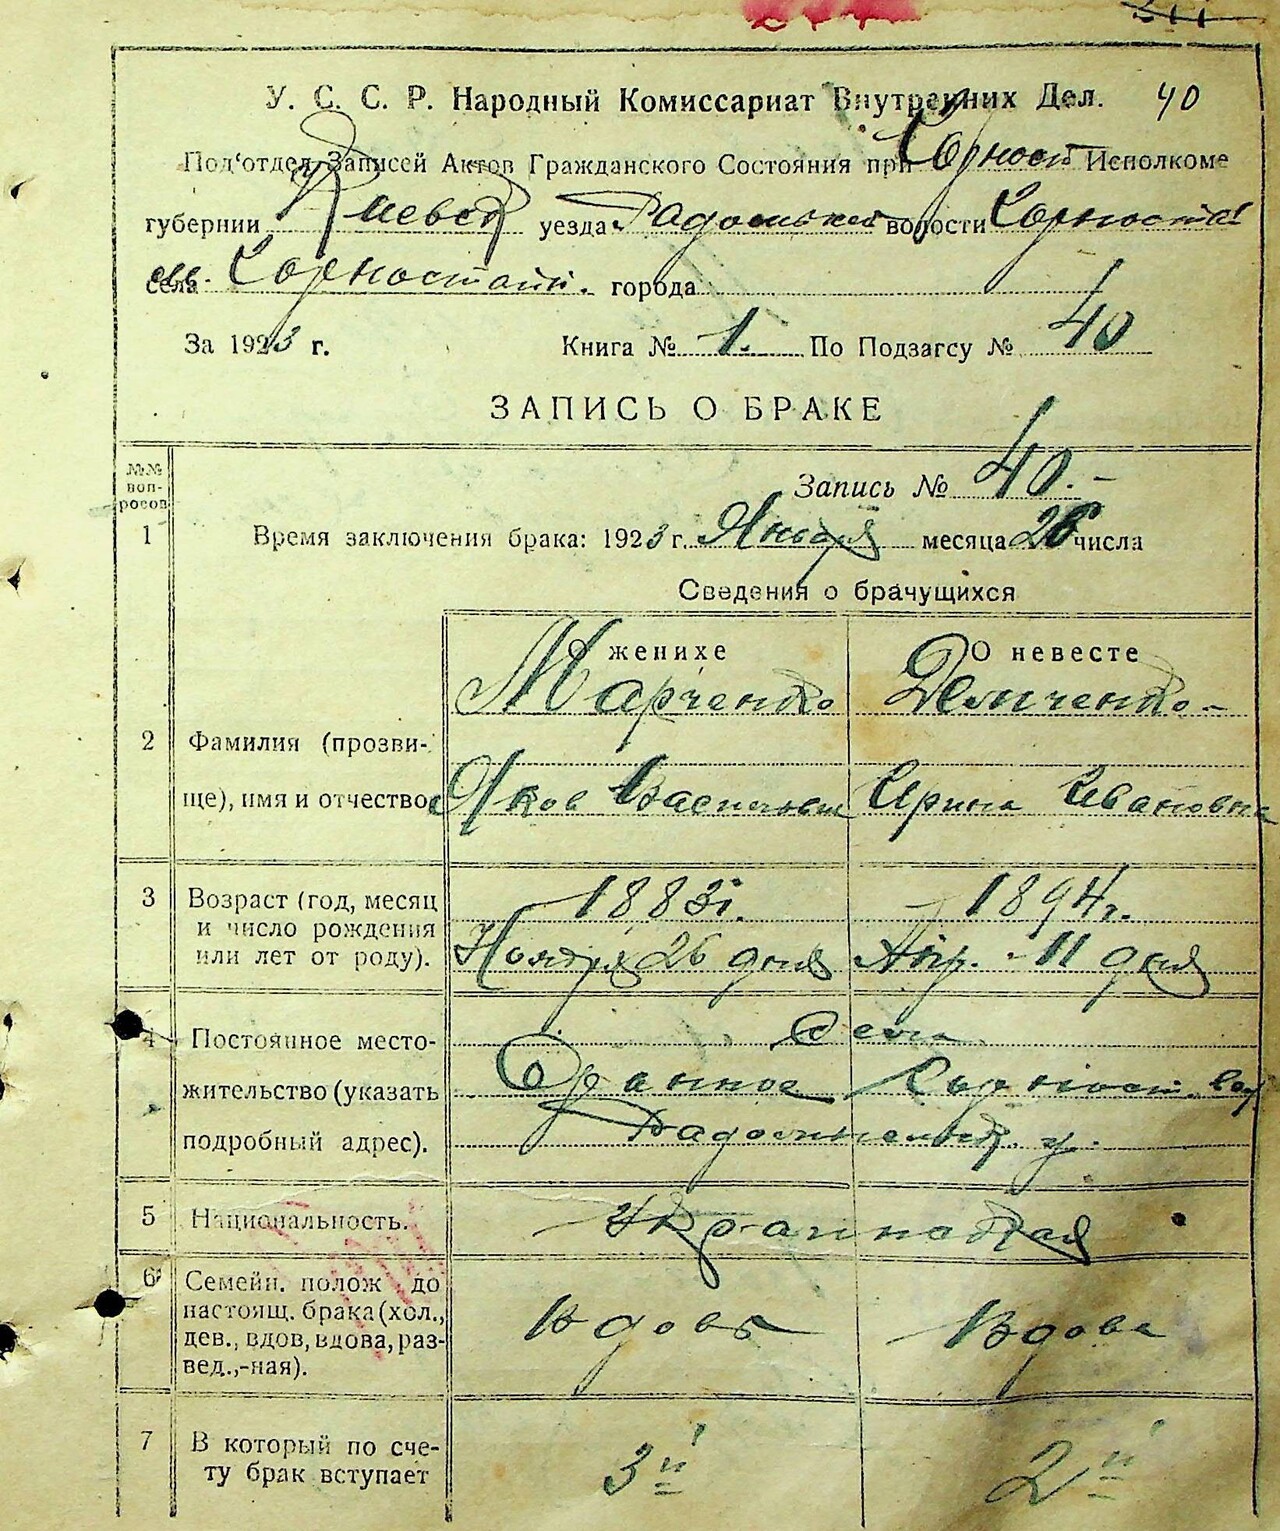 У. С. С. Р. Народный Комиссариат Внутренних Дел. 40
Под'отдел Записей Актов Гражданского Состояния при Горност Исполкоме
губернии Киевск уезда Радомысл волости Горностай
село Горностайп. города
За 1923 г. Книга № 1. По Подзагсу № 40
ЗАПИСЬ О БРАКЕ
№№ вопросов
Запись № 40.-
1 Время заключения брака: 1923 г. Января месяца 26 числа
Сведения о брачущихся
О женихе О невесте
Марченко Демченко-
2 Фамилия (прозви-
ще), имя и отчество Яков Васильевич Ирина Ивановна
3 Возраст (год, месяц 1883г. 1894г.
и число рождения
или лет от роду). Ноября 26 дня Апр. - 11 дня
4 Постоянное место- Села
жительство (указать Оранное Горност. вол
подробный адрес). Радомысльск. у.
5 Национальность. Украинская
6 Семейн. полож до
настоящ. брака (хол., Вдовъ Вдова
дев., вдов, вдова, раз-
вед.,-ная).
7 В который по сче- 3й 2й
ту брак вступает